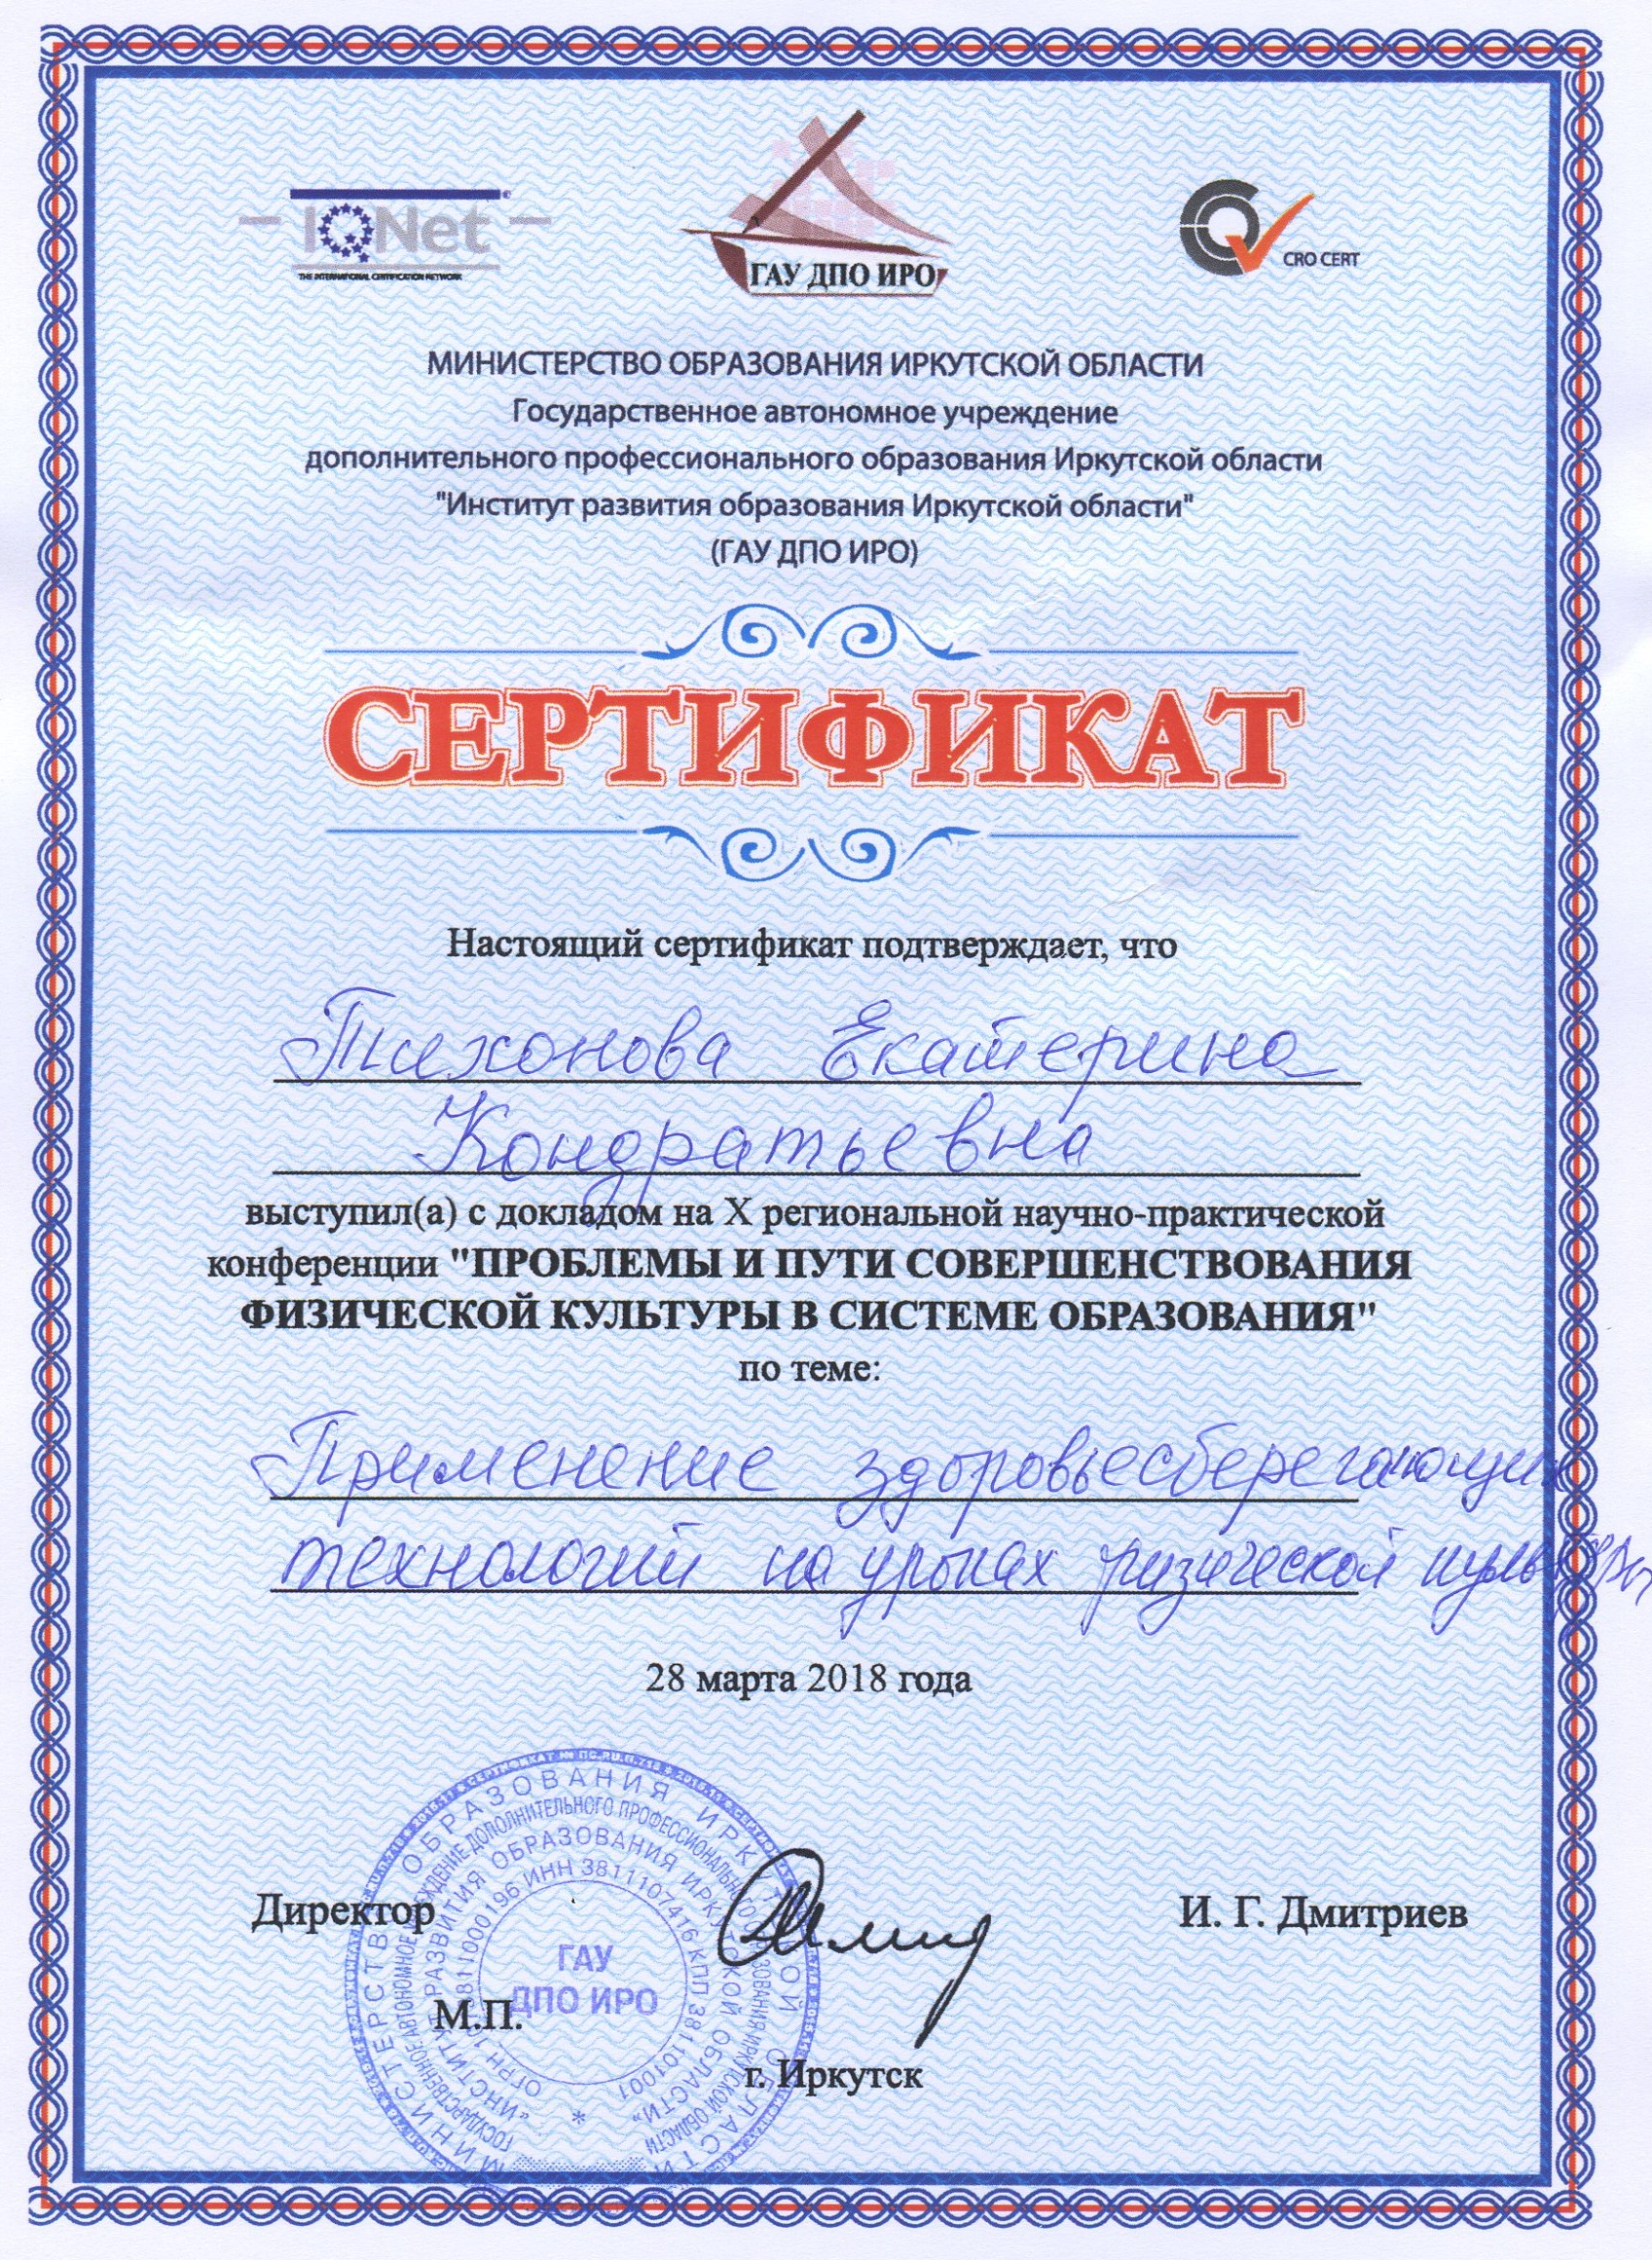 IQNet
THE INTERNATIONAL CERTIFICATION NETWORK
ГАУ ДПО ИРО
CRO CERT
МИНИСТЕРСТВО ОБРАЗОВАНИЯ ИРКУТСКОЙ ОБЛАСТИ
Государственное автономное учреждение
дополнительного профессионального образования Иркутской области
"Институт развития образования Иркутской области"
(ГАУ ДПО ИРО)
СЕРТИФИКАТ
Настоящий сертификат подтверждает, что
Тихонова Екатерина
Кондратьевна
выступил(а) с докладом на X региональной научно-практической
конференции "ПРОБЛЕМЫ И ПУТИ СОВЕРШЕНСТВОВАНИЯ
ФИЗИЧЕСКОЙ КУЛЬТУРЫ В СИСТЕМЕ ОБРАЗОВАНИЯ"
по теме:
Применение здоровьесберегающих
технологий на уроках физической культуры
28 марта 2018 года
Директор
И. Г. Дмитриев
М.П.
г. Иркутск
МИНИСТЕРСТВО ОБРАЗОВАНИЯ ИРКУТСКОЙ ОБЛАСТИ
ГОСУДАРСТВЕННОЕ АВТОНОМНОЕ УЧРЕЖДЕНИЕ ДОПОЛНИТЕЛЬНОГО ПРОФЕССИОНАЛЬНОГО ОБРАЗОВАНИЯ ИРКУТСКОЙ ОБЛАСТИ
"ИНСТИТУТ РАЗВИТИЯ ОБРАЗОВАНИЯ ИРКУТСКОЙ ОБЛАСТИ"
ИНН 3811107416 КПП 381101001
ГАУ
ДПО ИРО